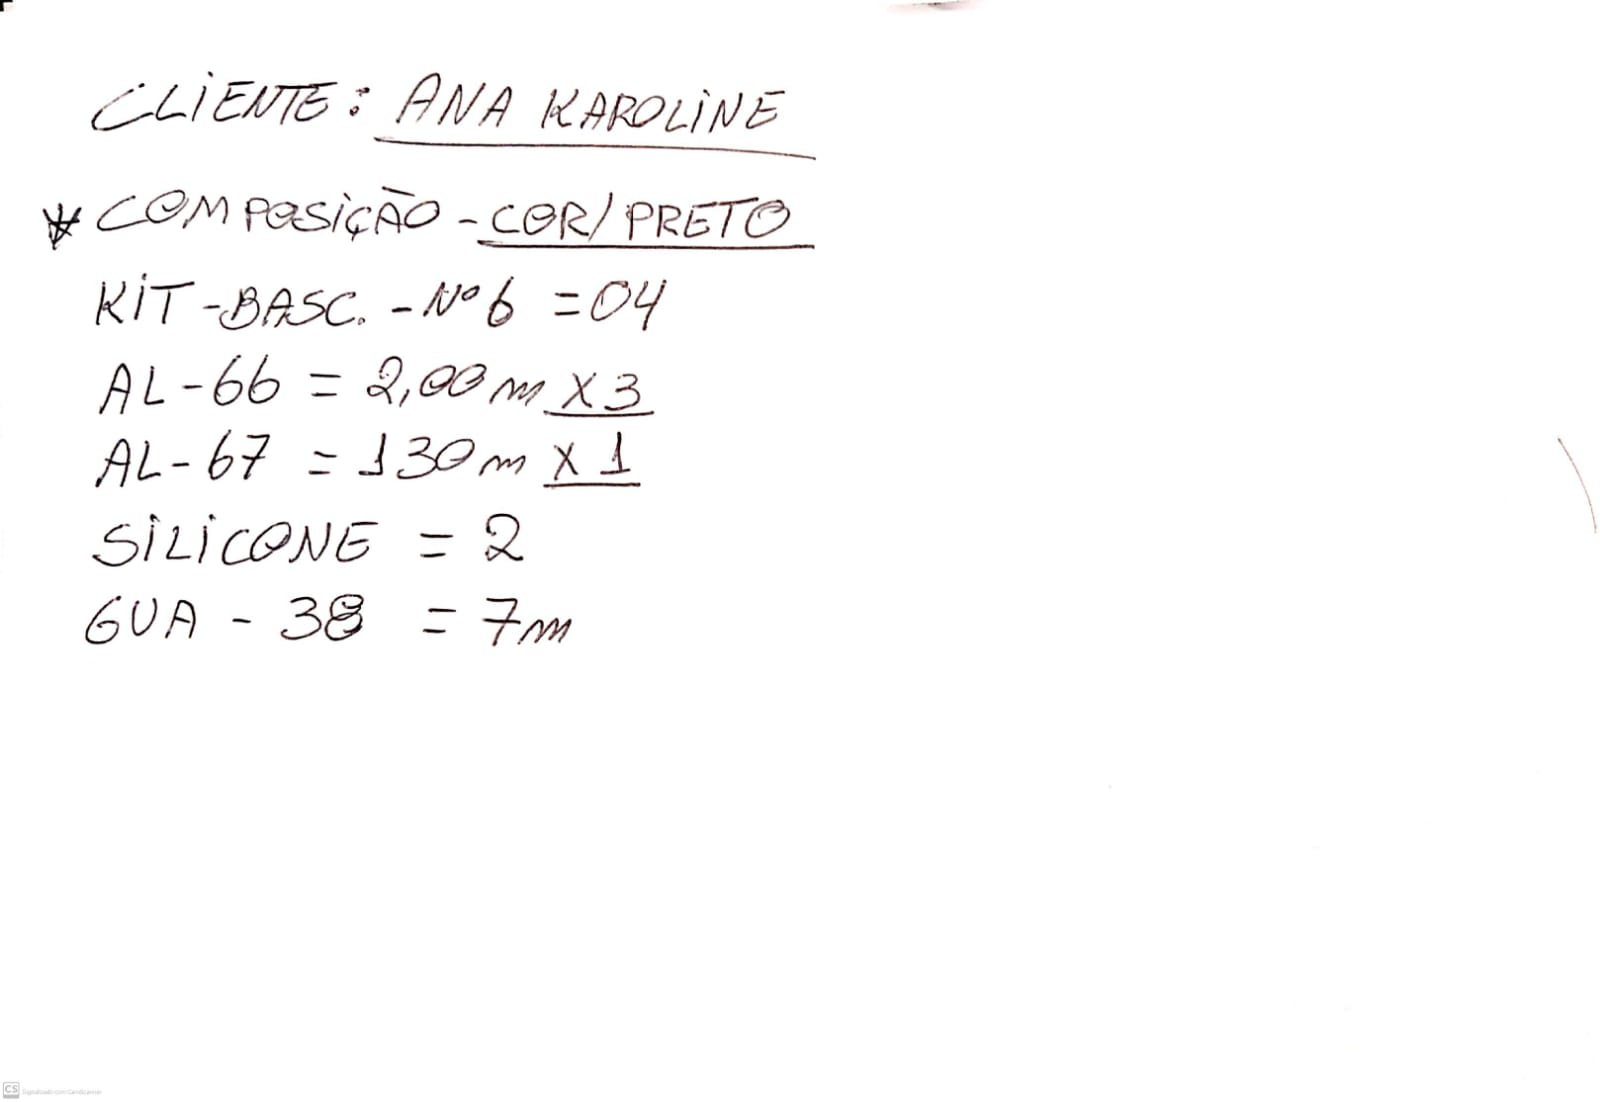 CLIENTE: ANA KAROLINE
* COMPOSIÇÃO - COR/ PRETO
KIT-BASC. - Nº 6 = 04
AL-66 = 2,00 m X 3
AL-67 = 130 m X 1
SILICONE = 2
GUA - 38 = 7m
CS Digitalizado com CamScanner